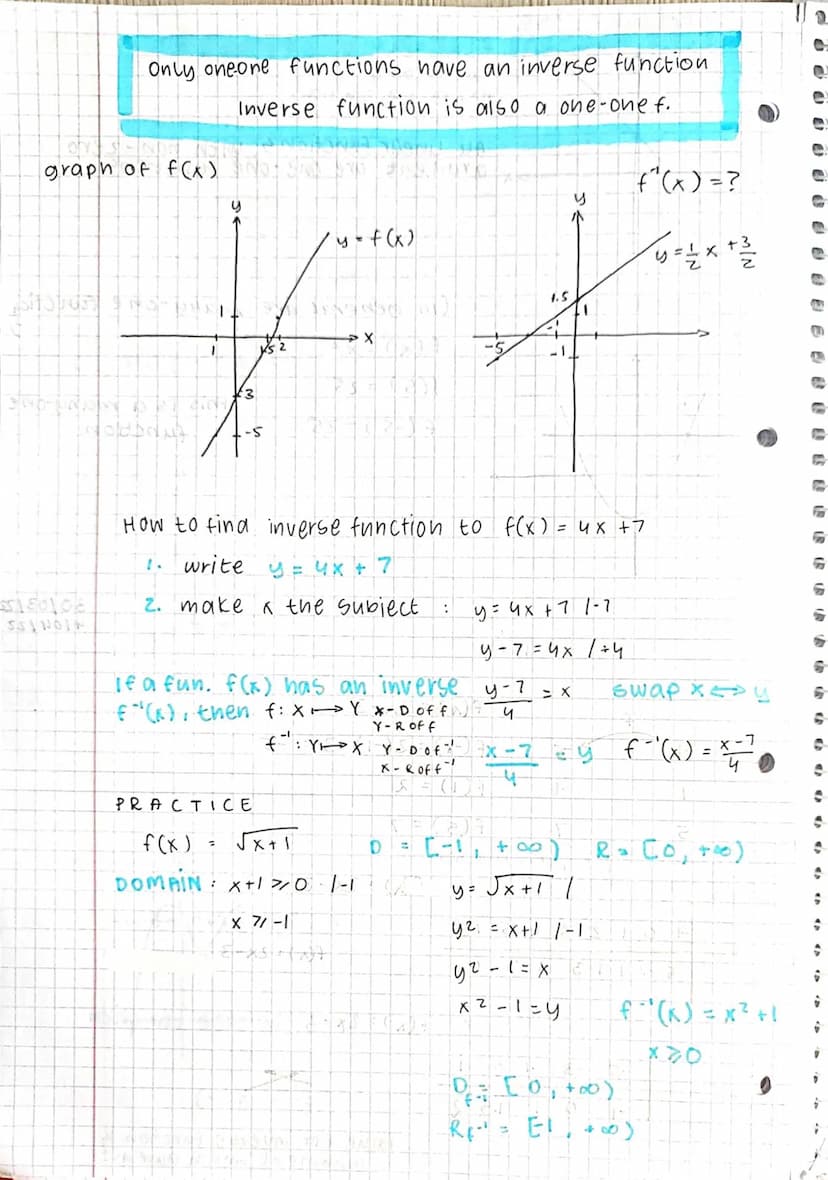 Only one-one functions have an inverse function
Inverse function is also a one-one f.
graph of f(x)
f⁻¹(x) = ?
y
y = f(x)
1
x
1
1.5 2
-3
-5
y
y = 1/2 x + 3/2
1.5
1
-1
-5
-1
How to find inverse function to f(x) = 4x + 7
1. write y = 4x + 7
2. make x the subject : y = 4x + 7 /-7
y - 7 = 4x /÷4
If a fun. f(x) has an inverse
f⁻¹(x), then f: X ↦ Y X - D of f
Y - R of f
f⁻¹: Y ↦ X Y - D of f⁻¹
X - R of f⁻¹
(y-7)/4 = x swap x ⇔ y
(x-7)/4 = y f⁻¹(x) = (x-7)/4
PRACTICE
f(x) = √(x+1) D = [-1, +∞) R = [0, +∞)
DOMAIN : x+1 ⩾ 0 /-1
x ⩾ -1
y = √(x+1) /
y² = x+1 /-1
y² - 1 = x
x² - 1 = y f⁻¹(x) = x² + 1
x ⩾ 0
D f⁻¹ = [0, +∞)
R f⁻¹ = [-1, +∞)